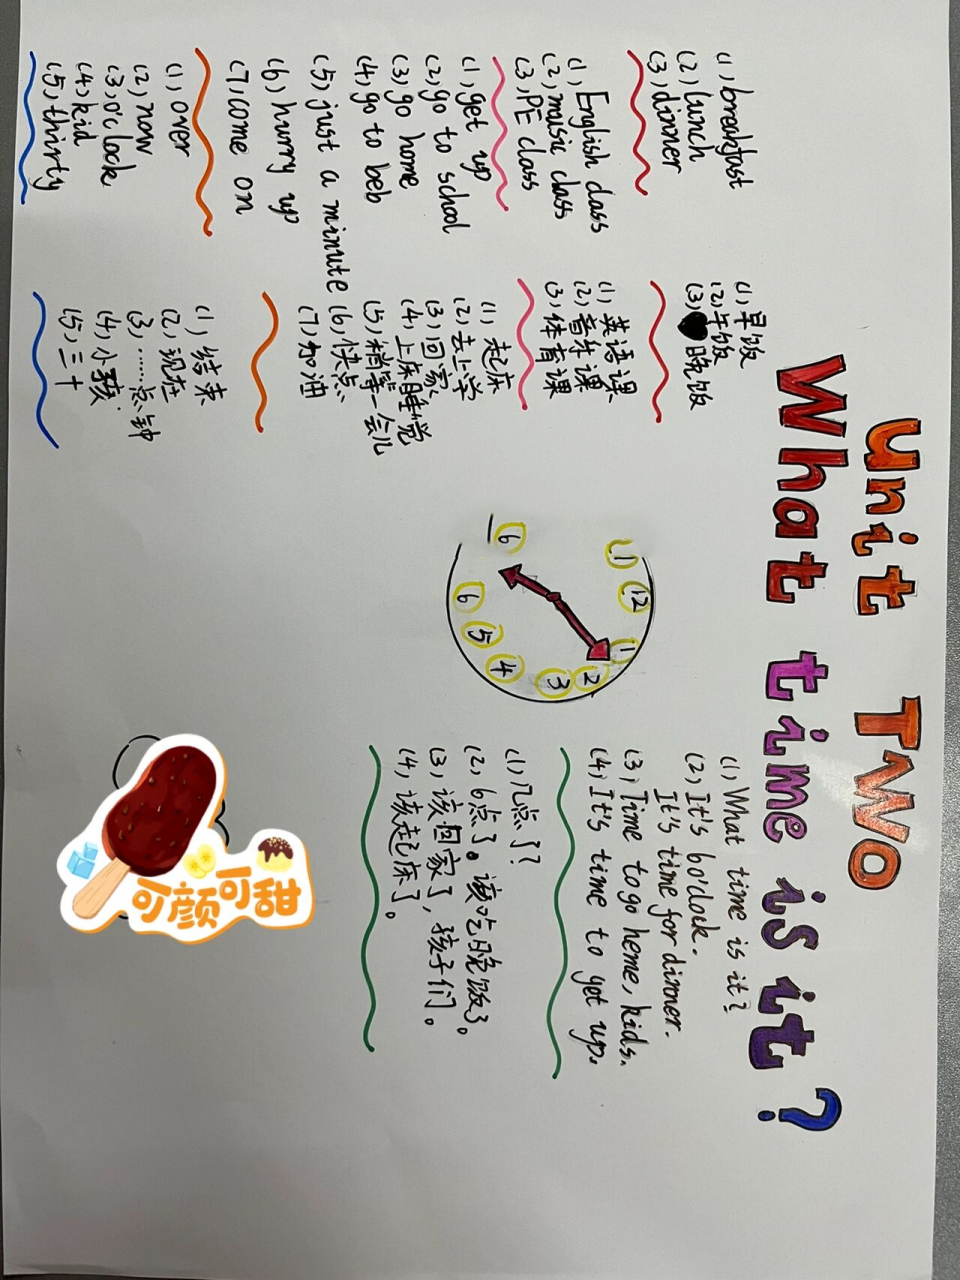 unit Two
What time is it?
(1), breakfast
(2), lunch
(3), dinner
(1), English class
(2), music class
(3), PE class
(1), get up
(2), go to school
(3), go home
(4), go to beb
(5), just a minute
(6), hurry up
(7), come on
(1), over
(2), now
(3), o'clock
(4), kid
(5), thirty
(1), 早饭
(2), 午饭
(3), 晚饭
(1), 英语课
(2), 音乐课
(3), 体育课
(1), 起床
(2), 去上学
(3), 回家
(4), 上床睡觉
(5), 稍等一会儿
(6), 快点
(7), 加油
(1), 结束
(2), 现在
(3), ……点钟
(4), 小孩
(5), 三十
12
1
2
3
4
5
6
6
(1), What time is it?
(2), It's 6 o'clock.
It's time for dinner.
(3), Time to go heme, kids.
(4), It's time to get up.
(1), 几点了?
(2), 6点了。该吃晚饭了。
(3), 该回家了,孩子们。
(4), 该起床了。
可颜可甜